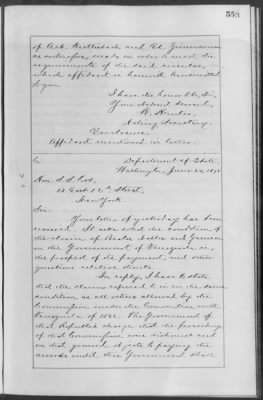 553
of Arb. Heilbuth and Ed. Zimmerman
made in order to meet the
requirements of the said
which affidavit is herewith transmitted
to you.
I have the honor to be, Sir,
Your obedient servant,
W. Hunter,
Acting Secretary.
Enclosure,
Affidavit mentioned in letter.
Department of State
Washington, June
Hon.
13 East 12th Street,
New York.
Sir
Your letter of yesterday has been
received. It asks what the condition of
the claim of
on the Government of Venezuela is,
the prospect of its payment, and other
questions relative thereto.
In reply, I have to state
that the claims referred to is in the same
condition as all others allowed by the
Commission under the Convention with
Venezuela of 1866. The Government of
that Republic charge that the proceedings
of that Commission were dishonest and
on that ground objects to paying the
awards until this Government shall